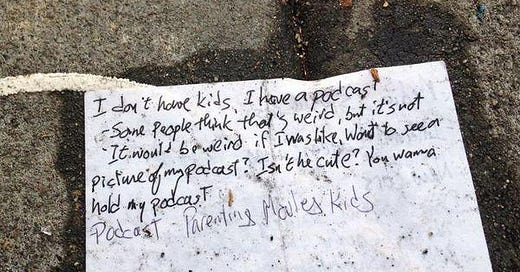 I don't have kids, I have a podcast
- Some people think that's weird, but it's not
- It would be weird if I was like, Want to see a
picture of my podcast? Isn't he cute? You wanna
hold my podcast
Podcast Parenting Movies Kids